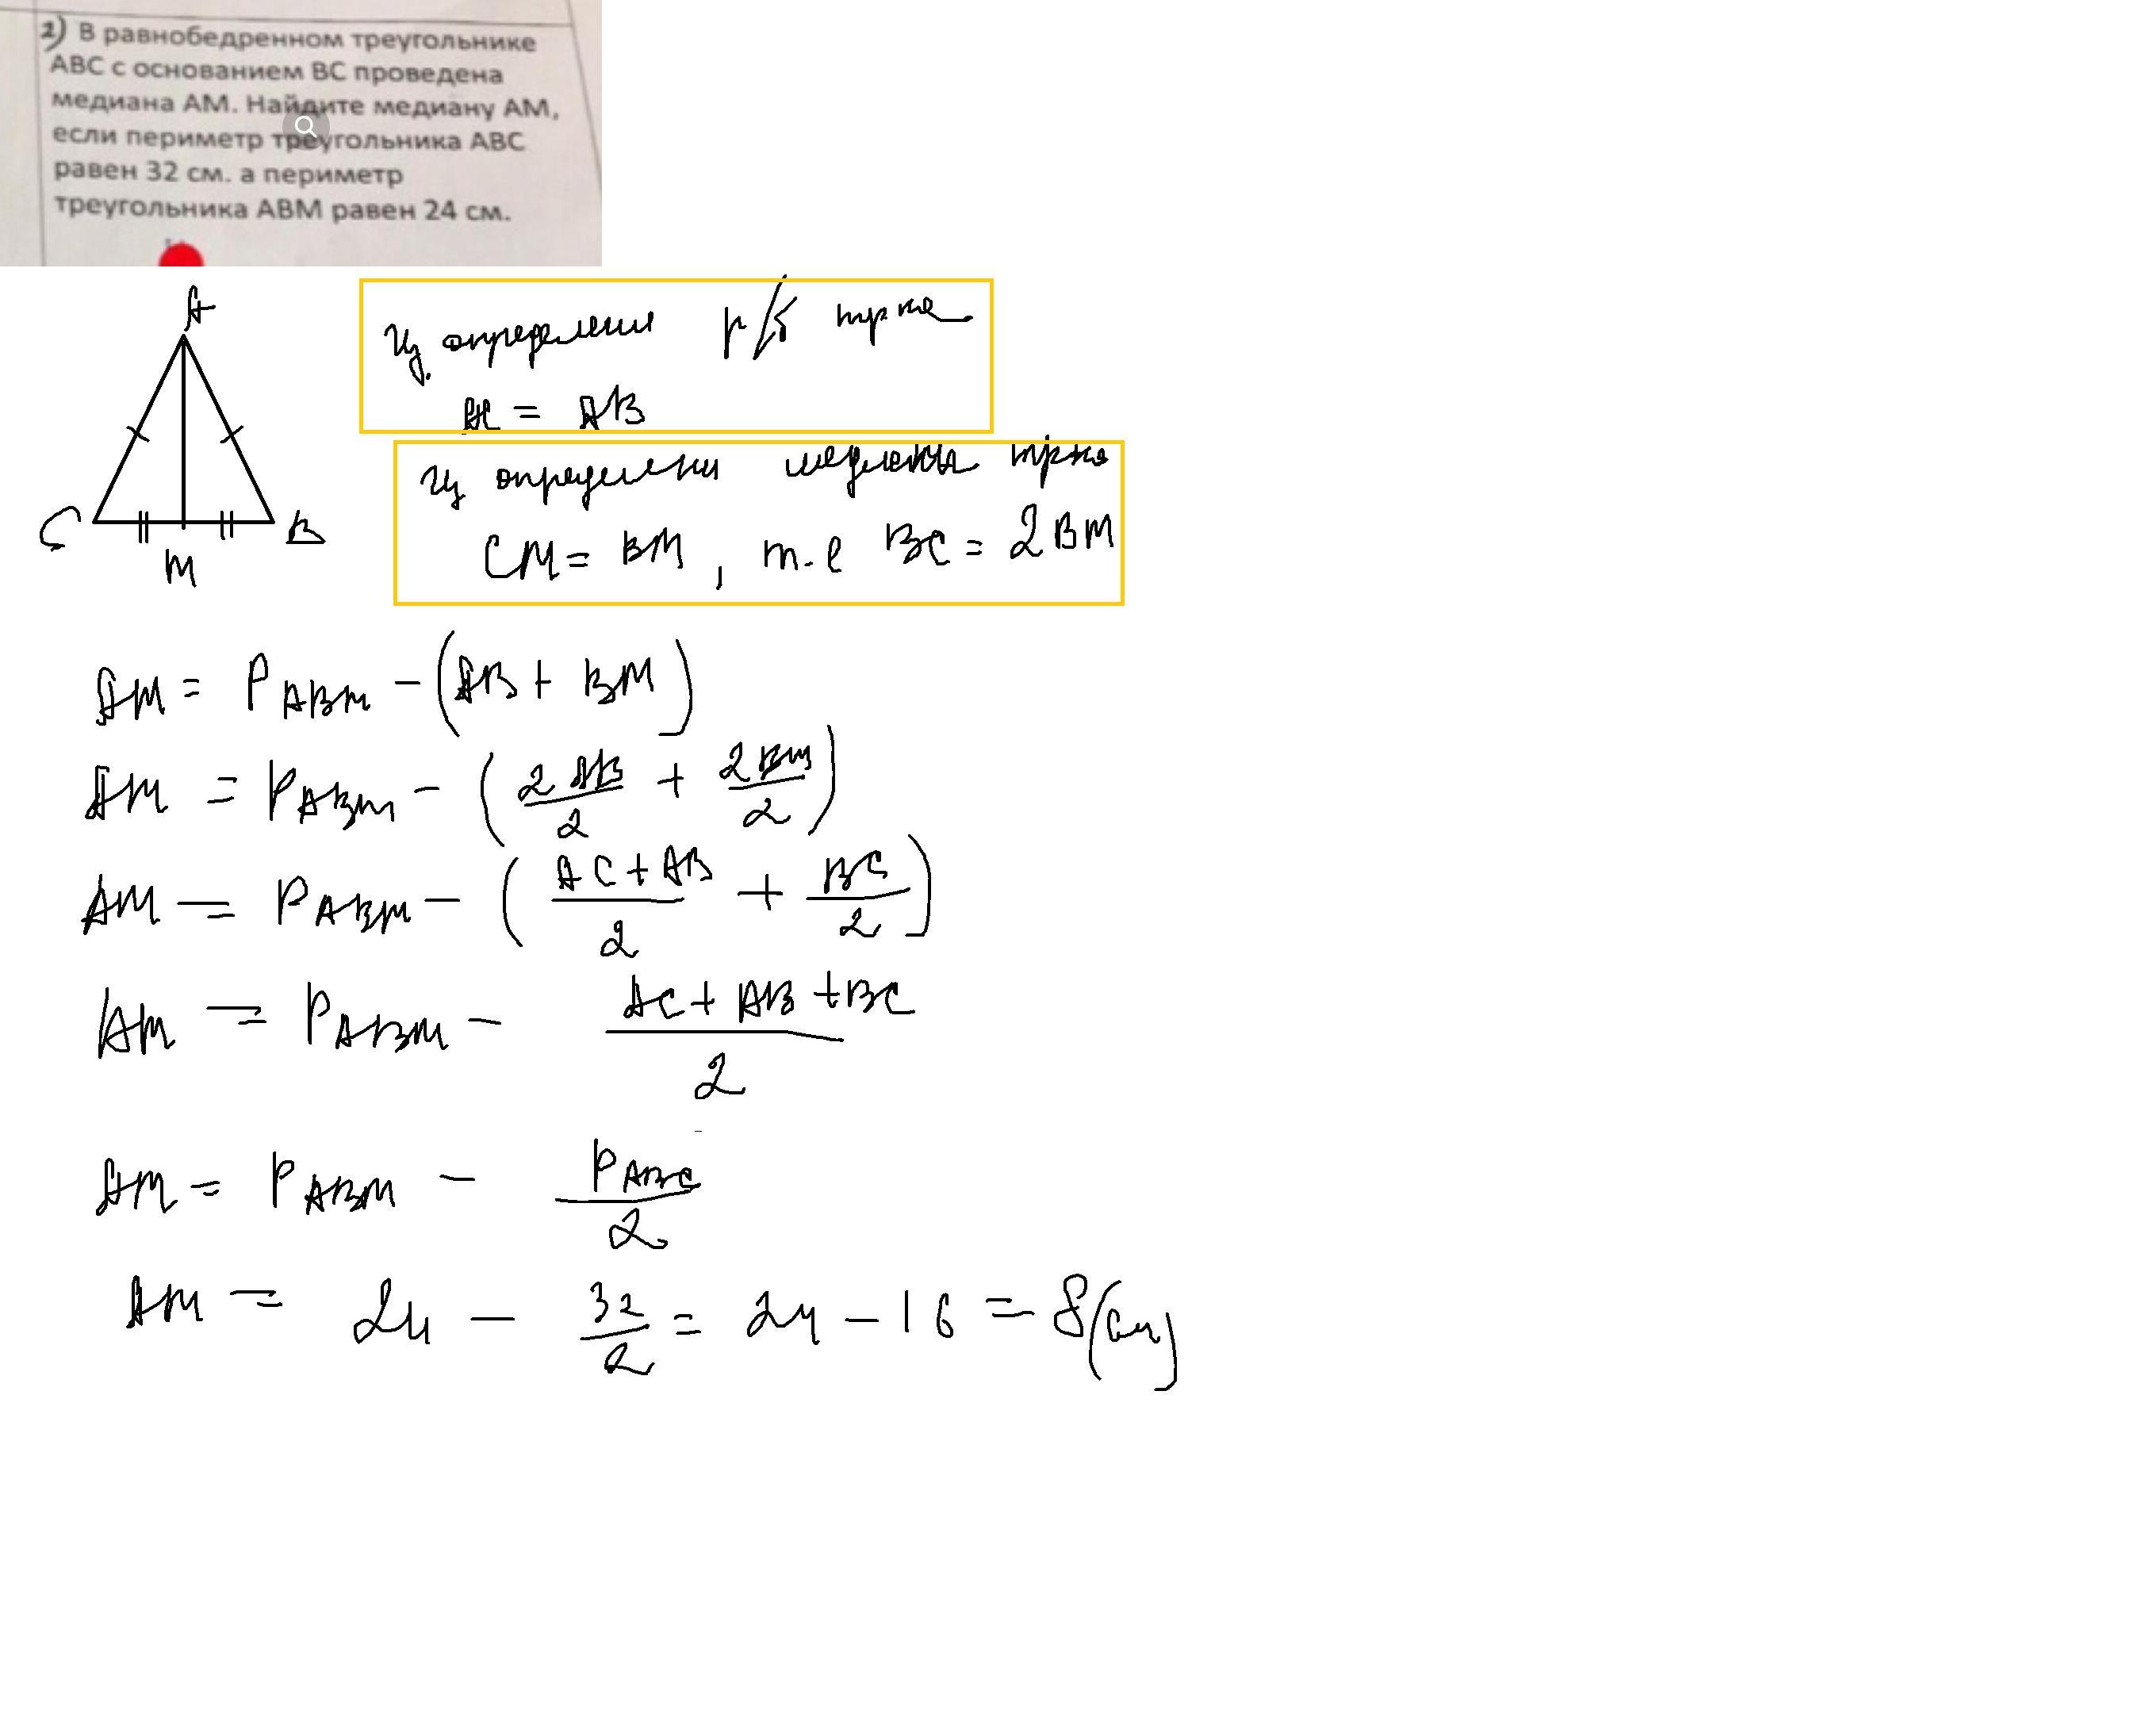 2) В равнобедренном треугольнике
АВС с основанием ВС проведена
медиана АМ. Найдите медиану АМ,
если периметр треугольника АВС
равен 32 см. а периметр
треугольника АВМ равен 24 см.
A
C
B
M
Из определения р/б тр-ка
AC = AB
Из определени медианы тр-ка
CM = BM, т.е BC = 2BM
AM = P ABM - (AB + BM)
AM = P ABM - (2AB/2 + 2BM/2)
AM = P ABM - (AC + AB/2 + BC/2)
AM = P ABM - AC + AB + BC/2
AM = P ABM - P ABC/2
AM = 24 - 32/2 = 24 - 16 = 8(см)